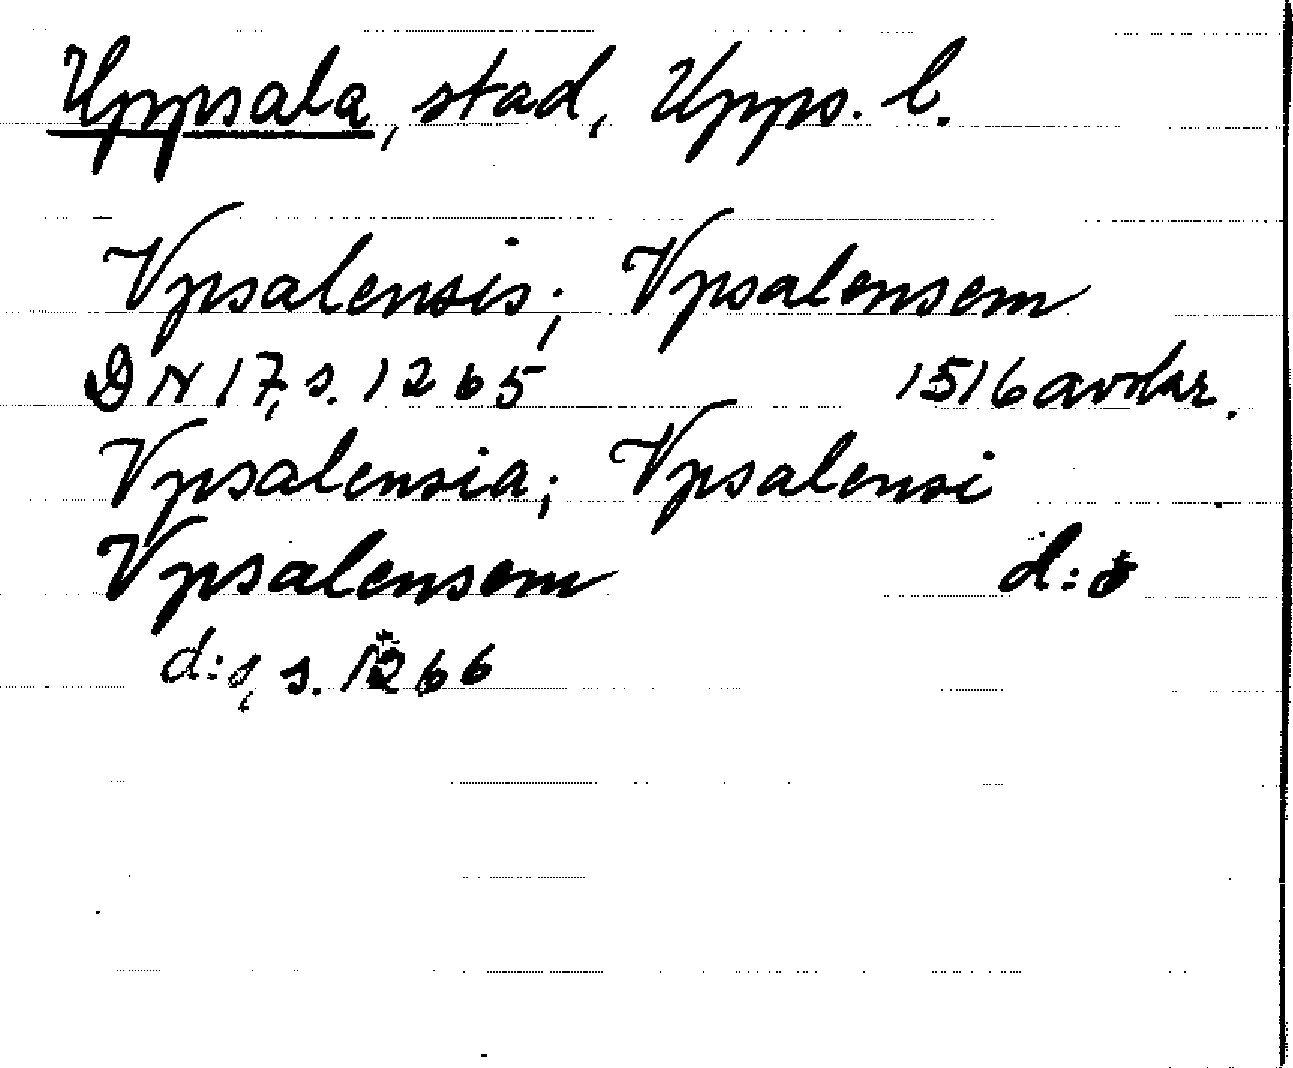 Uppsala, stad, Upps. l.
Vpsalensis; Vpsalensem
DN 17, s. 1265 1516 avskr.
Vpsalensia; Vpsalensi
Vpsalensem d:o
d:o, s. 1266